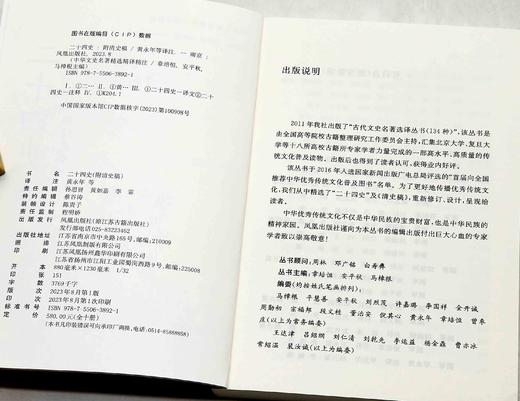 图书在版编目（CIP）数据
二十四史：附清史稿／黄永年等译注．—南京：
凤凰出版社，2023.8
（中华文史名著精选精译精注／章培恒，安平秋，
马樟根主编）
ISBN 978-7-5506-3892-1
Ⅰ．①二… Ⅱ．①黄… Ⅲ．①二十四史-译文②二十
四史-注释 Ⅳ．①K204.1
中国国家版本馆CIP数据核字（2023）第100998号
书名 二十四史（附清史稿）
译注 黄永年 等
责任编辑 孙思贤 黄如嘉 李霏
特约编辑 蔡谷涛
装帧设计 陈贵子
责任监制 程明娇
出版发行 凤凰出版社（原江苏古籍出版社）
发行部电话 025-83223462
出版社地址 江苏省南京市中央路165号，邮编：210009
照排 江苏凤凰制版有限公司
印刷 江苏凤凰扬州鑫华印刷有限公司
开本 880毫米×1230毫米 1/32
印张 151
字数 3769千字
版次 2023年8月第1版
印次 2023年8月第1次印刷
标准书号 ISBN 978-7-5506-3892-1
定价 580.00元（全十册）
（本书凡印装错误可向承印厂调换，电话：0514-85868858）
出版说明
2011年我社出版了“古代文史名著选译丛书（134种）”。该丛书是
由全国高等院校古籍整理研究工作委员会主持，汇集北京大学、复旦大
学等十八所高校古籍所专家学者力量完成的一部高水平、高质量的传
统文化普及读物。出版后也得到了读者认可，获得业内好评。
该丛书于2016年入选国家新闻出版广电总局评选的“首届向全国
推荐中华优秀传统文化普及图书”名单。为了更好地传播优秀传统文
化，我们从中精选了“二十四史”及《清史稿》，重新修订、设计，呈现给
读者。
中华优秀传统文化不仅是中华民族的宝贵财富，也是中华民族的
精神家园。凤凰出版社谨向为本丛书的编辑出版付出巨大心血的专家
学者致以崇高敬意！
丛书顾问：周林 邓广铭 白寿彝
丛书主编：章培恒 安平秋 马樟根
编委（均按姓氏笔画排列）：
马樟根 平慧善 安平秋 刘烈茂 许嘉璐 李国祥 金开诚
周勋初 宗福邦 段文桂 董治安 倪其心 黄永年 章培恒 曾枣
庄（以上为常务编委）
王达津 吕绍纲 刘仁清 刘乾先 李运益 杨金鼎 曹亦冰
常绍温 裴汝诚（以上为编委）